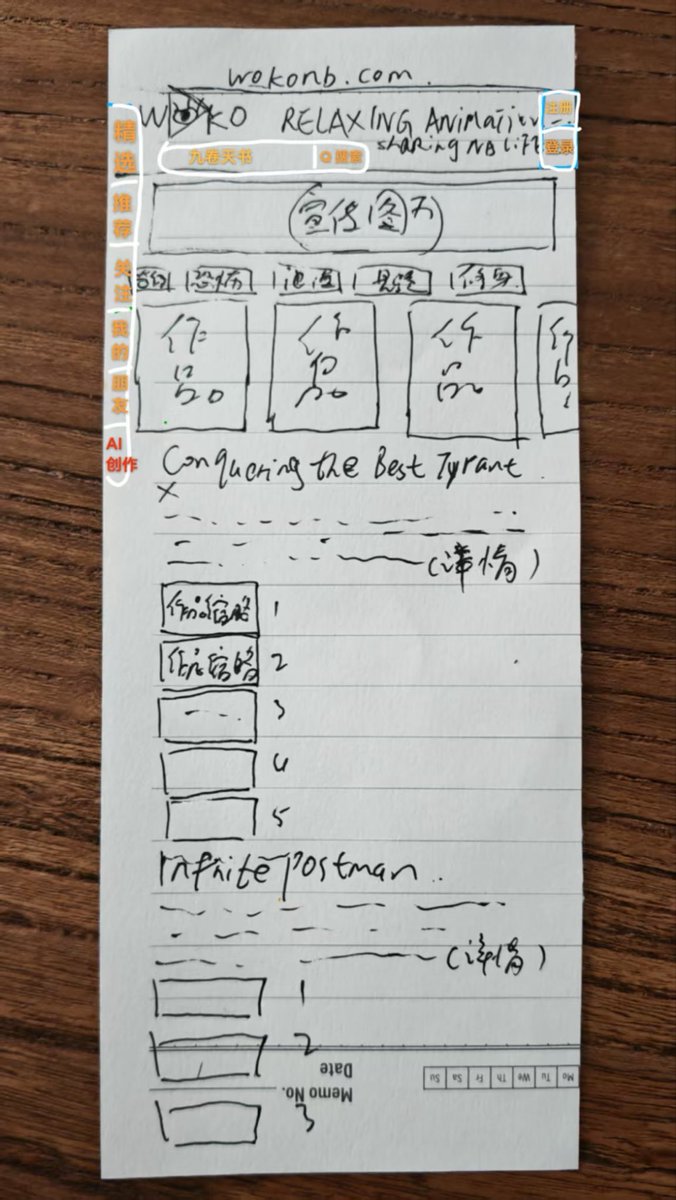 wokonb.com.
WOKO RELAXING Animation
sharing NB LIFE
注册
登录
九卷天书 搜索
精选
推荐
关注
我的朋友
AI创作
宣传图片
恐怖 悬疑
作品 作品 作品 作品
Conquering the Best Tyrant.
(详情)
作品缩略 1
作品缩略 2
3
4
5
Infinite postman..
(详情)
1
2
3
Memo No.
Date
Mo Tu We Th Fr Sa Su